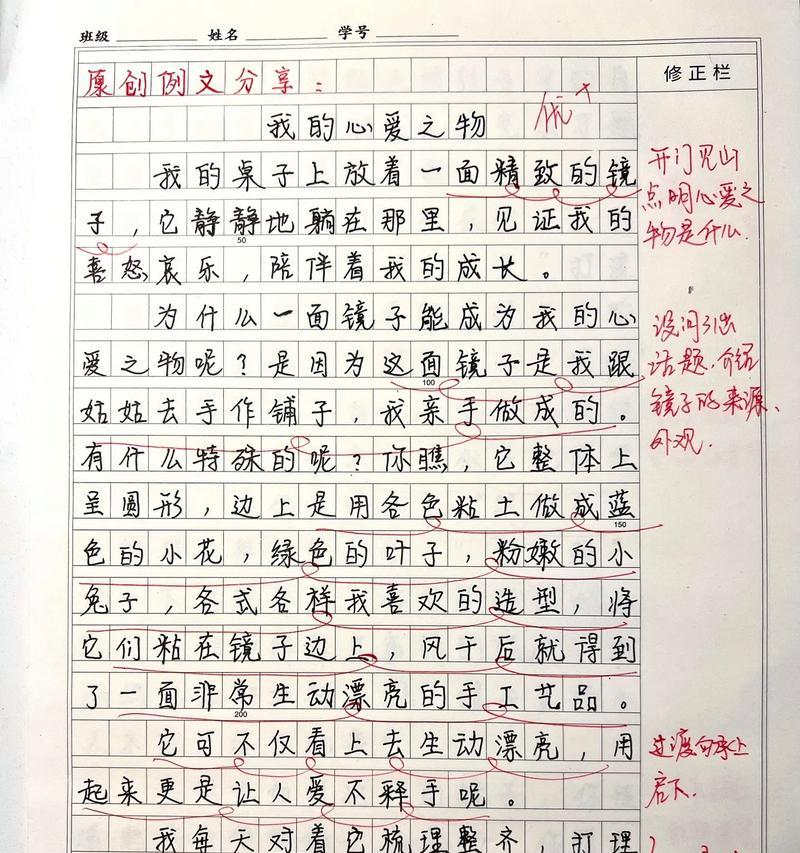 班级 姓名 学号
修正栏
原创例文分享：
优+
我的心爱之物
我的桌子上放着一面精致的镜
子，它静静地躺在那里，见证我的
50
喜怒哀乐，陪伴着我的成长。
开门见山
点明心爱之
物是什么.
为什么一面镜子能成为我的心
爱之物呢？是因为这面镜子是我跟
100
姑姑去手作铺子，我亲手做成的。
有什么特殊的呢？你瞧，它整体上
设问引出
话题.介绍
镜子的来源、
外观.
呈圆形，边上是用各色粘土做成蓝
150
色的小花，绿色的叶子，粉嫩的小
兔子，各式各样我喜欢的造型，将
它们粘在镜子边上，风干后就得到
了一面非常生动漂亮的手工艺品。
200
它可不仅看上去生动漂亮，用
起来更是让人爱不释手呢。
过渡句承上
启下.
我每天对着它梳理整齐，打理